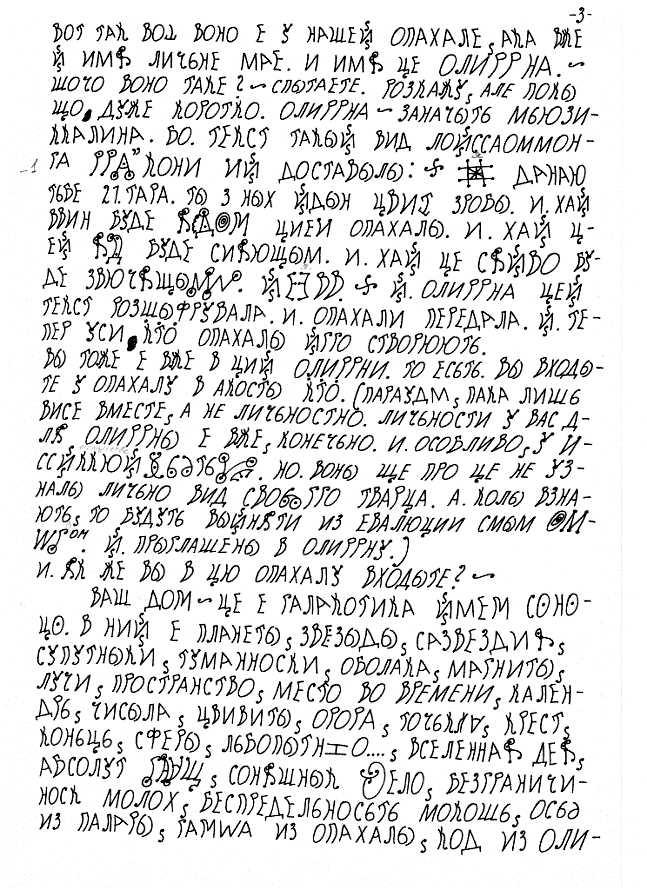 -3-
ВОТ ТАК ВОД ВОНО Е У НАШЕЙ ОПАХАЛЕ, АКА ВЖЕ
Й ИМЯ ЛИЧЬНЕ МАЕ. И ИМЯ ЦЕ ОЛИРРНА.~
ШОЧО ВОНО ТАКЕ? ~ СПЫТАЕТЕ. РОЗКАЖУ, АЛЕ ПОКЫ
ЩО, ДУЖЕ КОРОТКО. ОЛИРРНА ~ ЗНАЧЫТЬ МЬЮЗИ-
ККАЛИНА. ВО. ТЕКСТ ТАКЫЙ ВИД
ТА КОНИ ИЙ ДОСТАВЫЛЫ: ДАНАЮ
ТЬВЕ 21. ТАРА. ТЫ З НЫХ ЙДЫН ЦВИТ ЗРОБЫ. И. ХАЙ
ВВИН БУДЕ ЦИЕЙ ОПАХАЛЫ. И. ХАЙ Ц-
ЕЙ БУДЕ СИЯЮЩЫМ. И. ХАЙ ЦЕ СЯЙВО БУ-
ДЕ Й. ОЛИРРНА ЦЕЙ
ТЕКСТ РОЗШЫФРУВАЛА. И. ОПАХАЛИ ПЕРЕДАЛА. Й. ТЕ-
ПЕР УСИ, КТО ОПАХАЛЫ ЙГРО СТВОРЮЮТЬ.
ВЫ ТОЖЕ Е ВЖЕ В ЦИЙ ОЛИРРНИ. ТО ЕСЬТЬ. ВЫ ВХОДЫ-
ТЕ У ОПАХАЛУ В АКОСТЫ КТО. (ПАРАУДМ, ПАКА ЛИШЬ
ВИСЕ ВМЕСТЕ, А НЕ ЛИЧЬНОСТНО. ЛИЧЬНОСТИ У ВАС Д-
ЛЯ ОЛИРРНЫ Е ВЖЕ, КОНЕЧЬНО. И. ОСОБЛИВО, У И-
НО. ВОНЫ ЩЕ ПРО ЦЕ НЕ УЗ-
НАЛЫ ЛИЧЬНО ВИД ТВАРЦА. А. КОЛЫ ВЗНА-
ЮТЬ, ТО БУДУТЬ ВЫЙНЯТИ ИЗ ЕВАЛЮЦИИ СМЫМ
Й. ПРЫГЛАШЕНЫ В ОЛИРРНУ.)
И. ЯК ЖЕ ВЫ В ЦЮ ОПАХАЛУ ВХОДЫТЕ? ~
ВАШ ДОМ ~ ЦЕ Е ГАЛАКОТИКА ЙМЕМ СОНО-
ЦО. В НИЙ Е ПЛАНЕТЫ, ЗВЕЗЬДЫ, САЗВЕЗДИЯ,
СУПУТНЫКИ, ТУМАННОСКИ, ОБОЛАКА, МАГНИТЫ,
ЛУЧИ, ПРОСТРАНСТВО, МЕСТО ВО ВРЕМЕНИ, КАЛЕН-
ДРЬ, ЧИСЬЛА, ЦВИВИТЫ, ОРОРА, КРЕСТ,
КОНЬЦЬ, СФЕРЫ, ВСЕЛЕННАЯ ДЕЯ,
АБСОЛУТ СОНЯШНЫК БЕЗГРАНИЧИ-
НОСК МОЛОХ, БЕСПРЕДЕЛЬНОСЬТЬ МОКОШЬ, ОСЬД
ИЗ ПАЛАРЫ, ГАММА ИЗ ОПАХАЛЫ, КОД ИЗ ОЛИ-